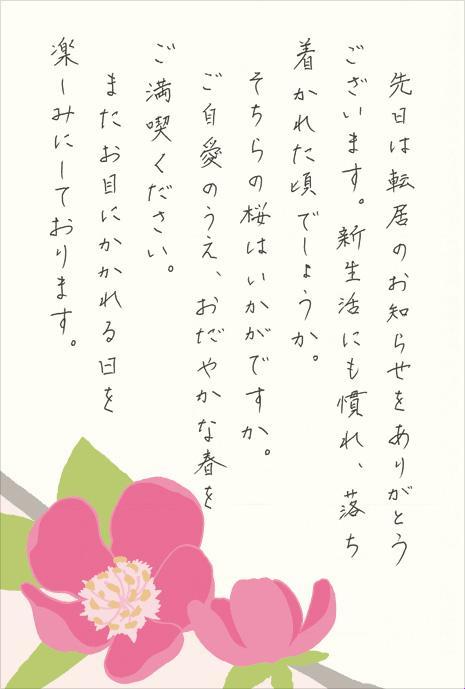 先日は転居のお知らせをありがとう
ございます。新生活にも慣れ、落ち
着かれた頃でしょうか。
そちらの桜はいかがですか。
ご自愛のうえ、おだやかな春を
ご満喫ください。
またお目にかかれる日を
楽しみにしております。